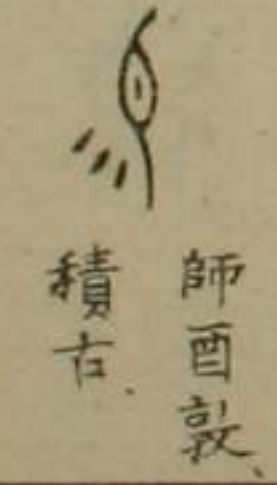 師酉敦、
積古、